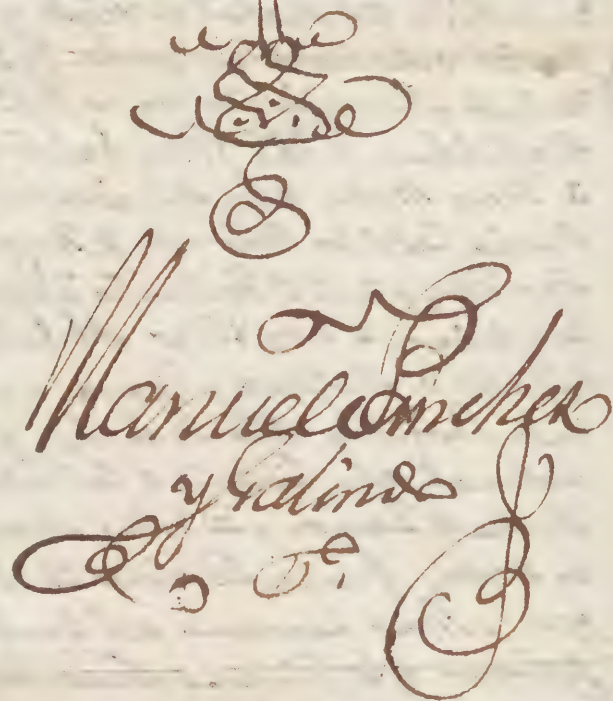 Manuel Sanchez
y Galindo